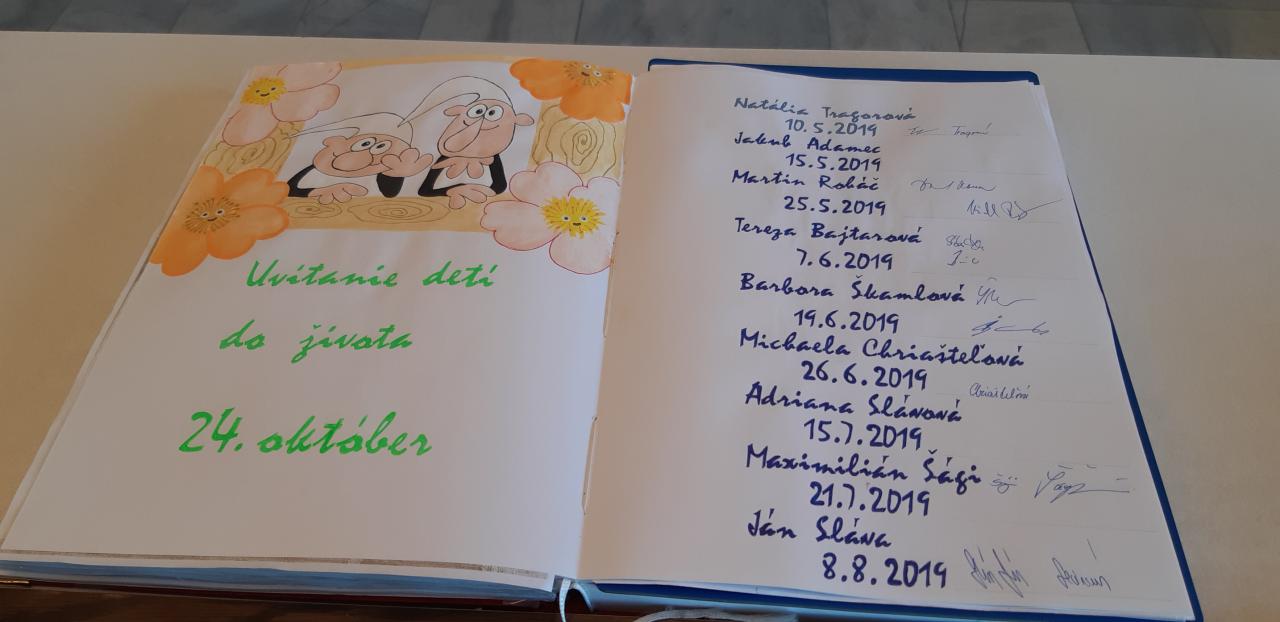 Uvítanie detí
do života
24. október
Natália Tragorová
10.5.2019
Jakub Adamec
15.5.2019
Martin Robáč
25.5.2019
Tereza Bajtarová
7.6.2019
Barbora Škamlová
19.6.2019
Michaela Chriašteľová
26.6.2019
Adriana Slávová
15.7.2019
Maximilián Šági
21.7.2019
Ján Sláva
8.8.2019